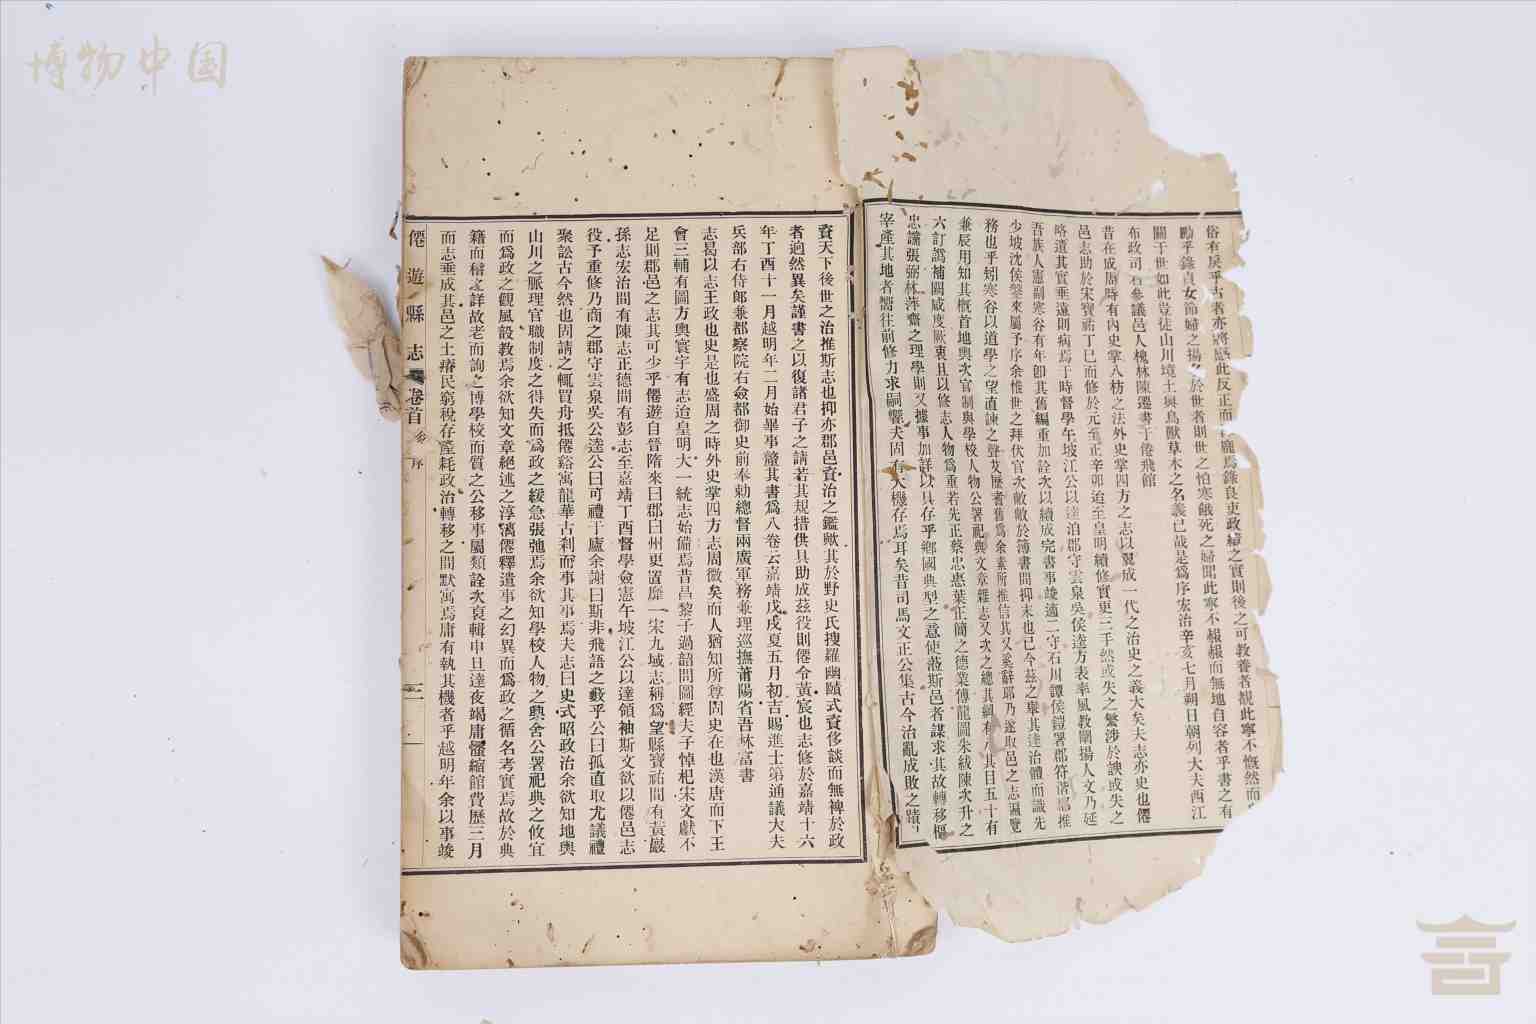 俗有戾乎古者亦將感此反正而龐焉錄良吏政績之實則後之可教養者覩此寧不慨然而
勵乎錄貞女節婦之揚名於世者則世之怕寒餓死之婦聞此寧不赧赧而無地自容者乎書之有
關于世如此豈徒山川境土與鳥獸草木之名義已哉是爲序宏治辛亥七月朔日朝列大夫西江
布政司右參議邑人槐林陳遷書于倦飛館
昔在成周時有內史掌八枋之法外史掌四方之志以翼成一代之治史之義大矣夫志亦史也僊
邑志助於宋寶祐丁巳而修於元至正辛卯迨至皇明續修實更三手然或失之繁涉於諛或失之
略遺其實垂遠則病焉于時督學午坡江公以達洎郡守雲泉吳侯逵方表率風教闡揚人文乃延
吾族人憲副寒谷有年卽其舊編重加詮次以續成完書事竣適二守石川譚侯鎧署郡符諧推
少坡沈侯鎣來屬予序余惟世之拜伏官次敝敝於簿書間抑末也已今茲之舉其達治體而識先
務也乎矧寒谷以道學之望直諫之聲艾歷耆舊爲余素所推信其又奚辭耶乃遂取邑之志遍覽
兼辰用知其概首地輿次官制與學校人物公署祀典文章雜志又次之總其綱有八其目五十有
六訂譌補闕咸度厥衷且以修志人物爲重若先正蔡忠惠葉正簡之德業傅龍圖朱紱陳次升之
忠讜張弼林萍齋之理學則又據事加詳以具存乎鄉國典型之意使涖斯邑者謀求其故轉移樞
宰產其地者嚮往前修力求嗣響夫固有大機存焉耳矣昔司馬文正公集古今治亂成敗之蹟
資天下後世之治推斯志也抑亦郡邑資治之鑑歟其於野史氏搜羅幽賾式資侈談而無裨於政
者逈然異矣謹書之以復諸君子之請若其規措供具助成茲役則僊令黃宸也志修於嘉靖十六
年丁酉十一月越明年二月始畢事釐其書爲八卷云嘉靖戊戌夏五月初吉賜進士第通議大夫
兵部右侍郎兼都察院右僉都御史前奉勅總督兩廣軍務兼理巡撫莆陽省吾林富書
志曷以志王政也史是也盛周之時外史掌四方志周微矣而人猶知所尊固史在也漢唐而下王
會三輔有圖方輿寰宇有志迨皇明大一統志始備焉昔昌黎子過韶問圖經夫子悼杞宋文獻不
足則郡邑之志其可少乎僊遊自晉隋來曰郡曰州更置靡一宋九域志稱爲望縣寶祐間有黃巖
孫志宏治間有陳志正德間有彭志至嘉靖丁酉督學僉憲午坡江公以達領袖斯文欲以僊邑志
役予重修乃商之郡守雲泉吳公逵公曰可禮于廬余謝曰斯非飛語之藪乎公曰孤直取尤議禮
聚訟古今然也固請之輒買舟抵僊谿寓龍華古刹而事其事焉夫志曰史式昭政治余欲知地輿
山川之脈理官職制度之得失而爲政之緩急張弛焉余欲知學校人物之興舍公署祀典之攸宜
而爲政之觀風設教焉余欲知文章絕述之淳漓僊釋遺事之幻異而爲政之循名考實焉故於典
籍而稽之詳故老而詢之博學校而質之公移事屬類詮次裒輯申旦達夜竭庸儘縮館費歷三月
而志垂成其邑之土瘠民窮稅存產耗政治轉移之間默寓焉庸有執其機者乎越明年余以事竣
僊遊縣志 卷首 序 二
博物中国